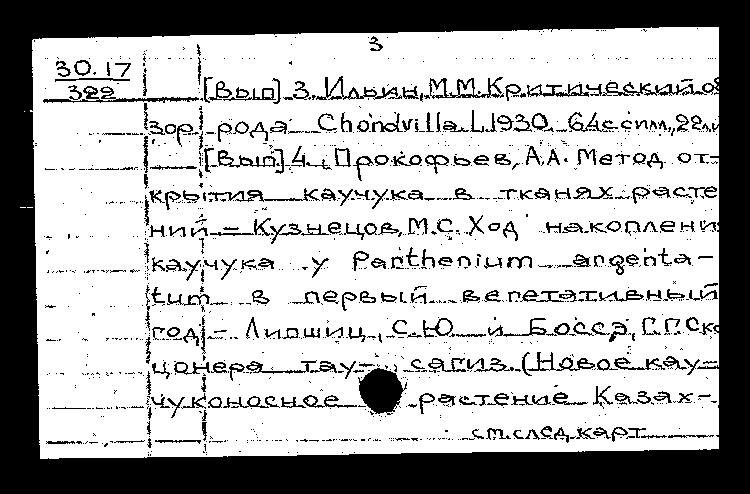 3
30.17
322
[Вып] 3. Ильин, М.М. Критический об
зор рода Chondrilla L. 1930. 64с с илл, 22
[Вып] 4. Прокофьев, А.А. Метод от-
крытия каучука в тканях расте
ний – Кузнецов, М.С. Ход накоплени
каучука у Parthenium argenta-
tum в первый вегетативный
год – Липшиц, С.Ю и Боссэ, Г.Г. Ско
цонера тау- сагиз. (Новое кау-
чуконосное растение Казах-
см. след карт